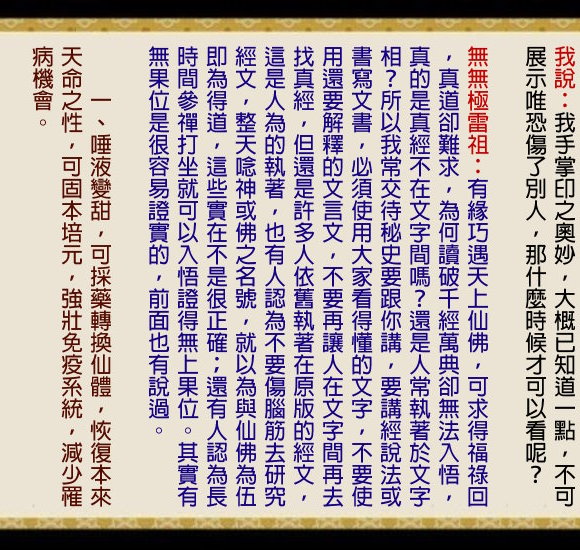 我說：我手掌印之奧妙，大概已知道一點，不可
展示唯恐傷了別人，那什麼時候才可以看呢？
無無極雷祖：有緣巧遇天上仙佛，可求得福祿回
，真道卻難求，為何讀破千經萬典卻無法入悟，
真的是真經不在文字間嗎？還是人常執著於文字
相？所以我常交待秘史要跟你講，要講經說法或
書寫文書，必須使用大家看得懂的文字，不要使
用還要解釋的文言文，不要再讓人在文字間再去
找真經，但還是許多人依舊執著在原版的經文，
這是人為的執著，也有人認為不要傷腦筋去研究
經文，整天唸神或佛之名號，就以為與仙佛為伍
即為得道，這些實在不是很正確；還有人認為長
時間參禪打坐就可以入悟證得無上果位。其實有
無果位是很容易證實的，前面也有說過。
一、唾液變甜，可採藥轉換仙體，恢復本來
天命之性，可固本培元，強壯免疫系統，減少罹
病機會。